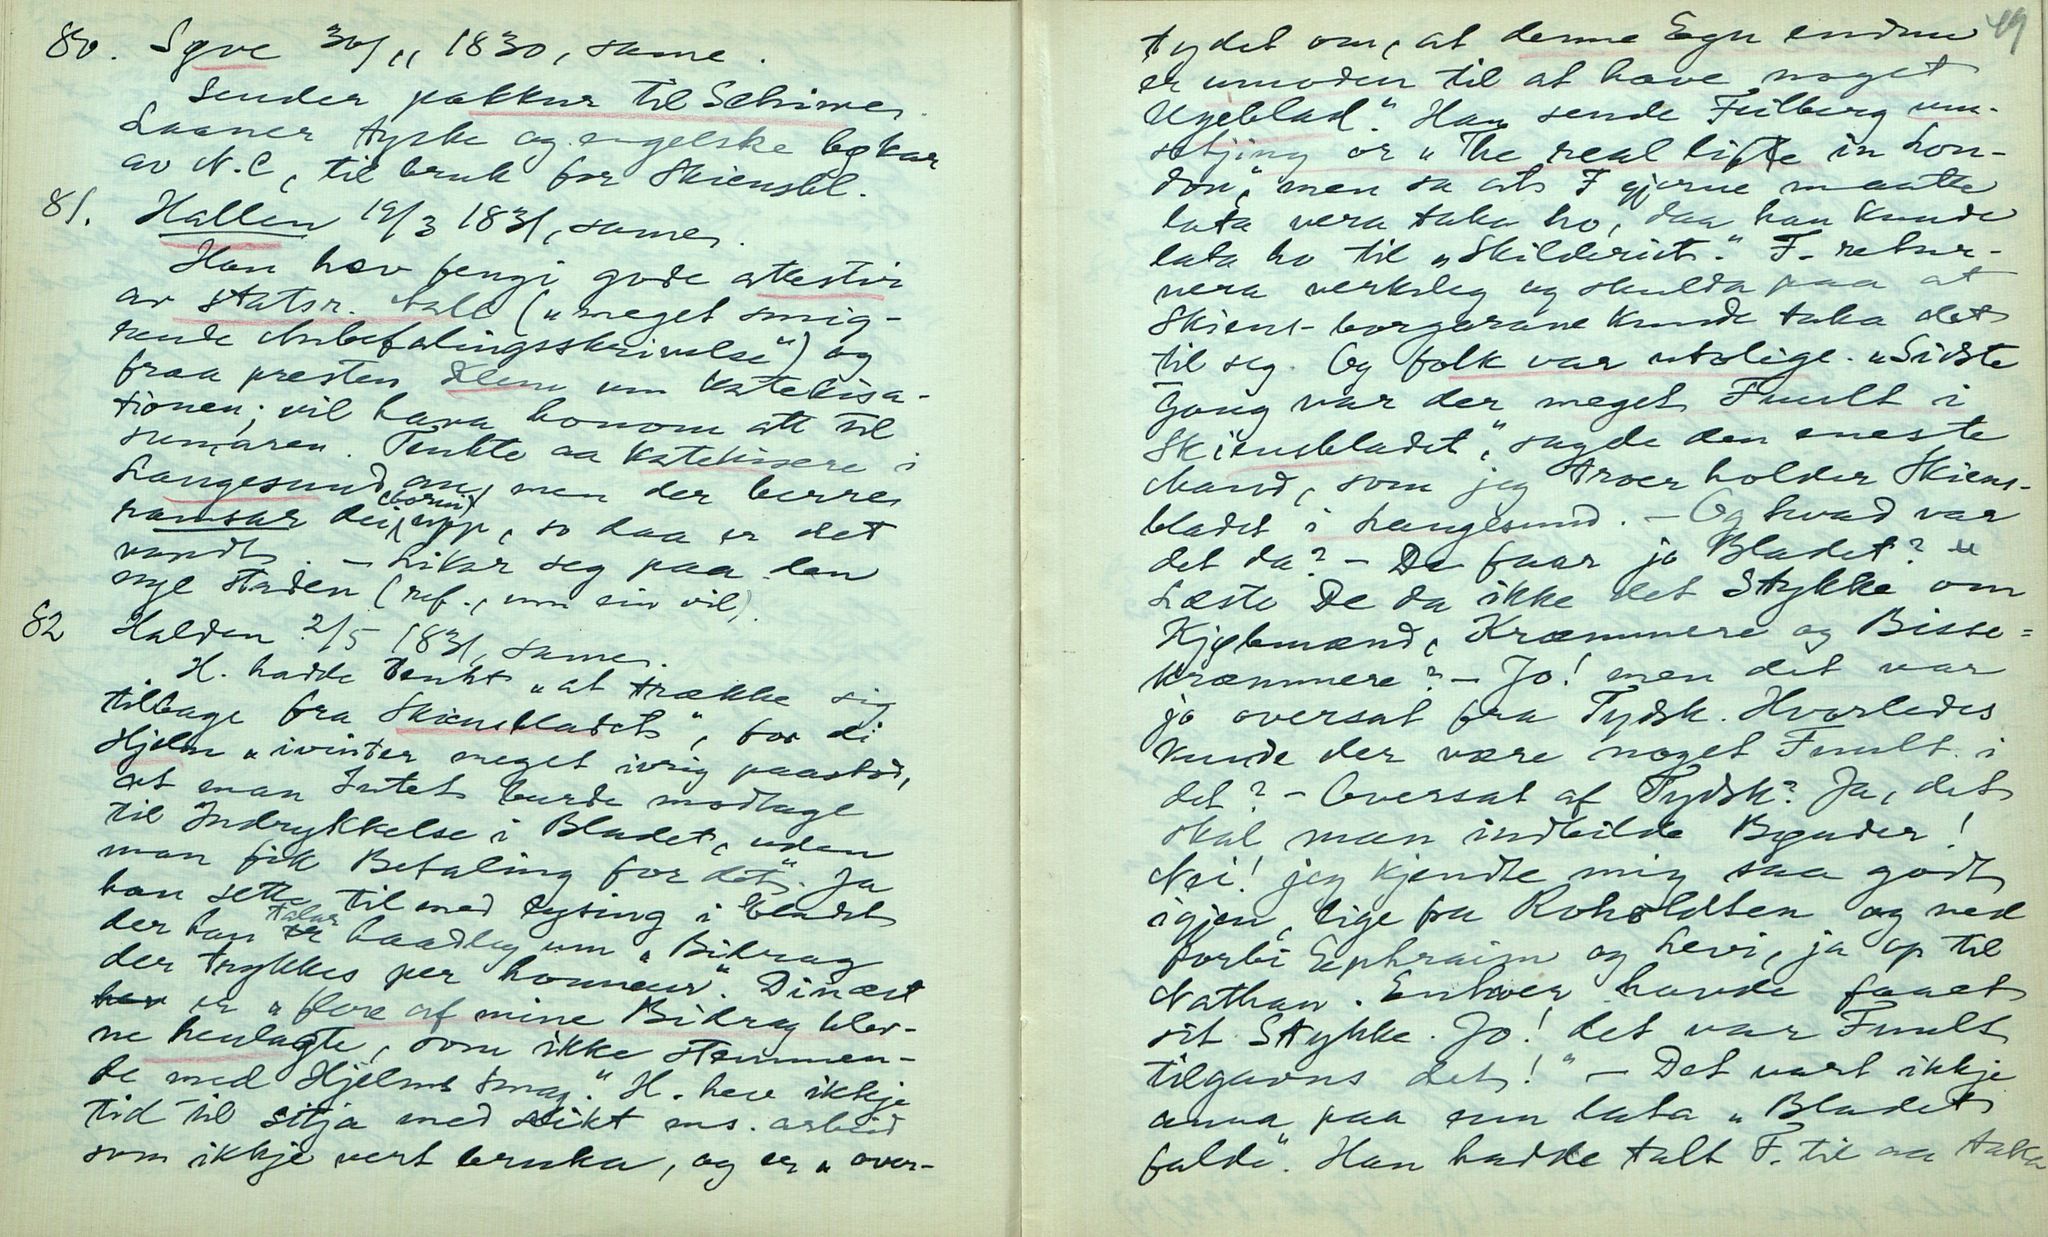 80. Syve 30/11 1830, same.
Sender pakkur til Schive.
Laaner tyske og engelske bøkar
av N. C, til bruk for Skiensbl.
81. Hallen 19/3 1831, same.
Han hev fengi gode attestir
av statsr. Falb („meget smig-
rende Anbefalingsskrivelse") og
fraa presten Klem um katekisa-
tionen; vil hava honom att til
sumaren. Tenkte aa katekisere i
Langesund au, men der berre
ramsar dei (borni) upp, so daa er det
vandt. – Likar seg paa den
nye staden (ref., um ein vil).
82 Halden 2/5 1831, same.
H. hadde tenkt „at trække sig
tilbage fra Skiensbladet", for di
Hjelm „ivinter meget ivrig paastod,
at man Intet burde modtage
til Indrykkelse i Bladet, uden
man fik Betaling for det". Ja
han sette til med lysing i bladet
der han talar haadleg um „Bidrag
der trykkes per honneur". Dinæst
er „flere af mine Bidrag blev-
ne henlagte, som ikke stemmen-
de med Hjelms Smag." H. hev ikkje
tid til sitja med slikt ms. arbeid
som ikkje vert bruka, og er „over-
49
tydet om, at denne Egn endnu
er umoden til at have noget
Ugeblad." Han sende Feilberg um-
setjing or „The real life in Lon-
don," men sa at F gjerne maatte
lata vera taka ho, daa han kunde
lata ho til „Skilderiet." F. retur-
nera verkeleg og skulda paa at
Skiens-borgarane kunde taka det
til seg. Og folk var utolige. „Sidste
Gang var der meget Fnult i
Skiensbladet," sagde den eneste
Mand, som jeg troer holder Skiens-
bladet i Langesund. – Og hvad var
det da? – De faar jo Bladet?
Læste De da ikke det Stykke om
Kjøbmænd, Kræmmere og Bisse=
kræmmere? – Jo! men det var
jo oversat fra Tydsk. Hvorledes
kunde der være noget Fnult i
det? – Oversat af Tydsk? Ja, det
skal man indbilde Bønder!
Nei! jeg kjendte mig saa godt
igjen, lige fra Roholdten og ned
forbi Ephraim og Levi, ja op til
Nathan. Enhver havde faaet
sit Stykke. Jo! det var Fnult
tilgavns det!" – Det vart ikkje
anna paa enn lata „Bladet
falde". Han hadde talt F. til aa taka